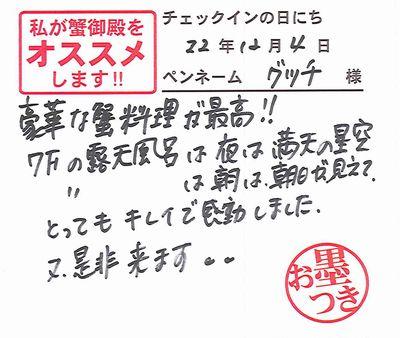 私が蟹御殿を
オススメ
します!!
チェックインの日にち
22年12月4日
ペンネーム グッチ 様
豪華な蟹料理が最高!!
7Fの露天風呂は夜は満天の星空
〃 は朝は、朝日が見えて、
とってもキレイで感動しました。
又、是非来ます。。
お墨つき